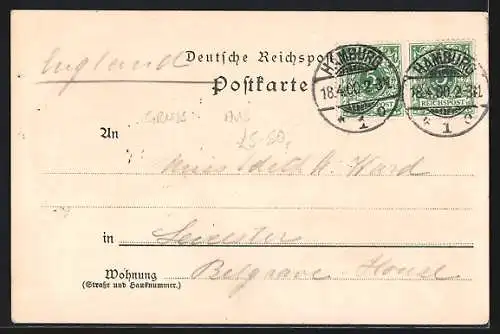 England
Deutsche Reichspost
Postkarte
HAMBURG
18.4.00.2-3N.
* 1 c
HAMBURG
18.4.00.2-3N.
* 1 c
5
REICHSPOST
An
Miss Edith A. Ward
in Leicester
Wohnung Belgrave House
(Straße und Hausnummer.)